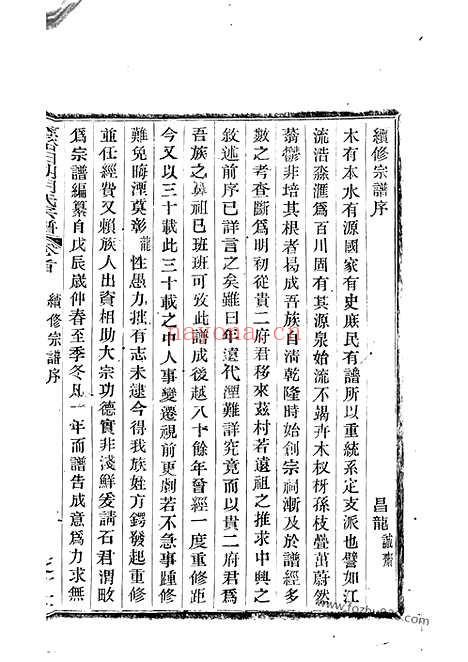 續修宗譜序
昌龍 誠齋
木有本水有源國家有史庶民有譜所以重統系定支派也譬如江
流浩淼滙爲百川固有其源泉始流不竭卉木杈枒孫枝疊萬蔚然
蓊鬱非培其根者曷成吾族自清乾隆時始創宗祠漸及於譜經多
數之考查斷爲明初從貴二府君移來茲村若遠祖之推求中興之
敘述前序已詳言之矣雖曰年遠代湮難詳究竟而以貴二府君爲
吾族之鼻祖已班班可攷此譜成後越八十餘年曾經一度重修距
今又以三十載此三十載之中人事變遷視前更劇若不急事踵修
難免晦湮莫彰龍性愚力拙有志未逮今得我族姓方鍔發起重修
並任經費又賴族人出資相助大宗功德實非淺鮮爰請石君渭畋
爲宗譜編纂自戊辰歲仲春至季冬凡一年而譜告成意爲力求無
氏宗譜 卷首 續修宗譜序
nayona.cn
www.fozhu920.com